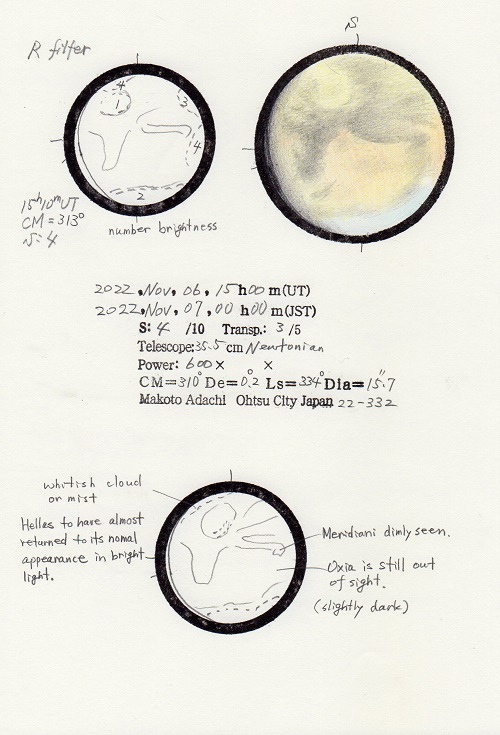 S
R filter
4
1
3
4
2
15h10mUT
CM=313°
S=4
number brightness
2022, Nov, 06, 15h00m(UT)
2022, Nov, 07, 00h00m(JST)
S: 4 /10 Transp.: 3 /5
Telescope: 35.5 cm Newtonian
Power: 600× ×
CM=310° De=0.2° Ls=334° Dia=15.7"
Makoto Adachi Ohtsu City Japan 22-332
whitish cloud
or mist
Hellas to have almost
returned to its nomal
appearance in bright
light.
Meridiani dimly seen.
Oxia is still out
of sight.
(slightly dark)